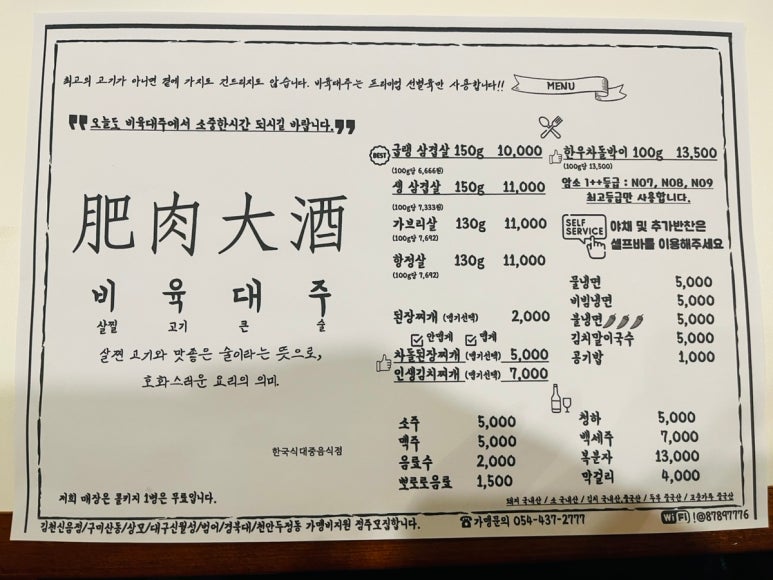 최고의 고기가 아니면 곁에 가지도 건드리지도 않습니다. 비육대주는 프리미엄 선별육만 사용합니다!!
MENU
❜❜오늘도 비육대주에서 소중한시간 되시길 바랍니다.❜❜
肥肉大酒
비 육 대 주
살찔 고기 큰 술
살찐 고기와 맛좋은 술이라는 뜻으로,
호화스러운 요리의 의미.
한국식대중음식점
저희 매장은 콜키지 1병은 무료입니다.
BEST
급랭 삼겹살 150g 10,000
(100g당 6,666원)
생 삼겹살 150g 11,000
(100g당 7,333원)
가브리살 130g 11,000
(100g당 7,692)
항정살 130g 11,000
(100g당 7,692)
된장찌개 (맵기선택) 2,000
안맵게 맵게
차돌된장찌개 (맵기선택) 5,000
인생김치찌개 (맵기선택) 7,000
한우차돌박이 100g 13,500
(100g당 13,500)
암소 1++등급 : NO7, NO8, NO9
최고등급만 사용합니다.
SELF SERVICE
야채 및 추가반찬은
셀프바를 이용해주세요
물냉면 5,000
비빔냉면 5,000
불냉면 5,000
김치말이국수 5,000
공기밥 1,000
소주 5,000
맥주 5,000
음료수 2,000
뽀로로음료 1,500
청하 5,000
백세주 7,000
복분자 13,000
막걸리 4,000
돼지 국내산 / 소 국내산 / 김치 국내산,중국산 / 두부 중국산 / 고춧가루 중국산
김천신음점/구미산동/상모/대구신월성/범어/경북대/천안두정동 가맹비지원 점주모집합니다.
☎가맹문의 054-437-2777
WiFi !@87897776